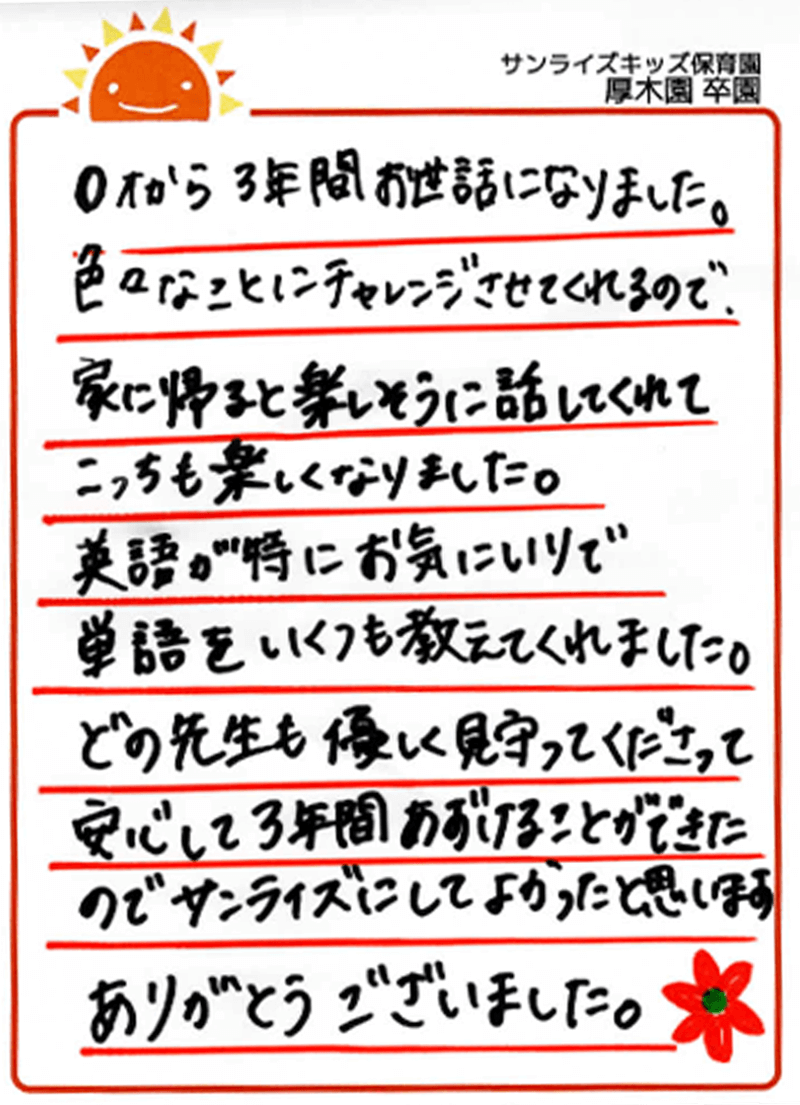 サンライズキッズ保育園
厚木園 卒園
0才から 3年間 お世話になりました。
色々なことにチャレンジさせてくれるので、
家に帰ると楽しそうに話してくれて
こっちも楽しくなりました。
英語が特にお気にいりで
単語をいくつも教えてくれました。
どの先生も優しく見守ってくださって
安心して3年間あずけることができた
のでサンライズにしてよかったと思います
ありがとうございました。